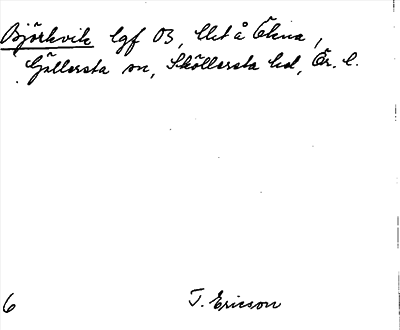 Björkvik lgf 03, Ekt å Ökna,
Gällersta sn, Sköllersta hd, Ör. l.
6 T. Ericson